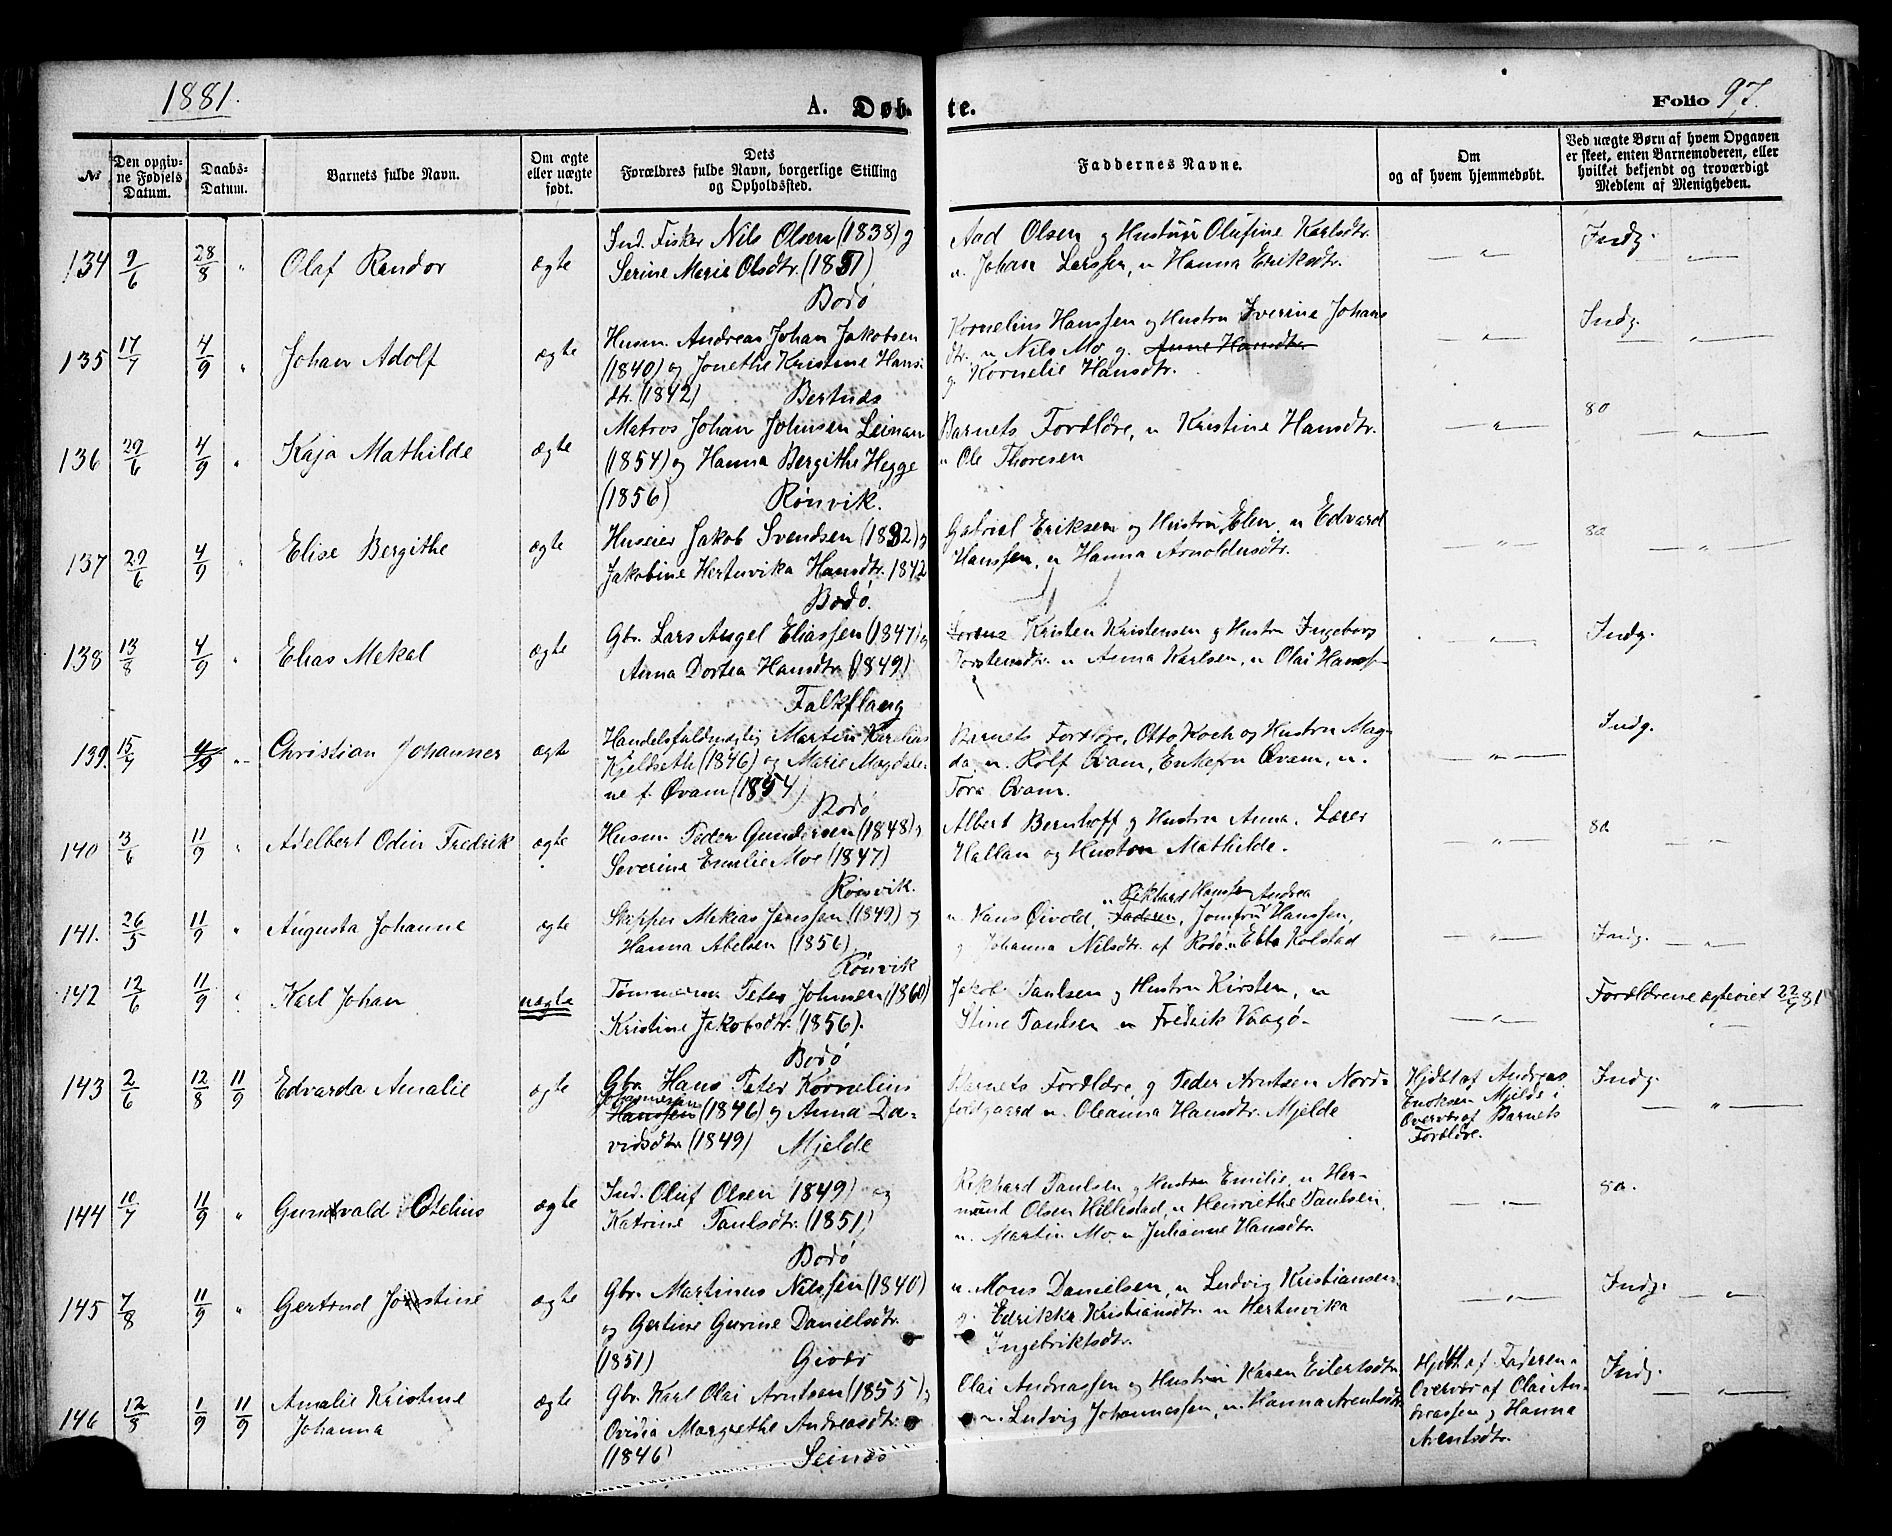 1881.
A. Døb-
te.
Folio 97.
No
Den opgiv-
ne Fødsels
Datum.
Daabs-
Datum.
Barnets fulde Navn.
Om ægte
eller uægte
født.
Dets
Forældres fulde Navn, borgerlige Stilling
og Opholdssted.
Faddernes Navne.
Om
og af hvem hjemmedøbt.
Ved uægte Børn af hvem Opgaven
er skeet, enten Barnemoderen, eller
hvilket bekjendt og troværdigt
Medlem af Menigheden.
134 9/6 28/8 " Olaf Randor ægte
Ind. Fisker Nils Olsen (1838) og
Serine Marie Olsdtr. (1851)
Bodø
Aad Olsen og Hustru Olufine Karlsdtr.
u. Johan Larssen, u Hanna Eriksdtr.
— " —
Indg.
— " —
135 17/7 4/9 " Johan Adolf ægte
Husm. Andreas Johan Jakobsen
(1840) og Jonethe Kristine Hans-
dtr. (1842) Bertnes
Kornelius Hanssen og Hustru Iverine Johans
dtr. u Nils Mo, g. Anne Hansdtr
g. Kornelie Hansdtr.
— " —
Indg.
— " —
136 29/6 4/9 " Kaja Mathilde ægte
Matros Johan Johnsen Leinan
(1854) og Hanna Bergithe Hegge
(1856) Rønvik.
Barnets Forældre, u Kristine Hansdtr.
u Ole Thoresen
— " —
80
— " —
137 29/6 4/9 " Elise Bergithe ægte
Huseier Jakob Svendsen (1832) og
Jakobine Hertnvika Hansdtr. 1842
Bodø.
Gabriel Eriksen og Hustru Elen, u Edvard
Hanssen, u Hanna Arnoldusdtr.
— " —
80
— " —
138 13/8 4/9 " Elias Mekal ægte
Gbr. Lars Angel Eliassen (1847) og
Anna Dortea Hansdtr. (1849)
Falkflaug
Kristen Kristensen og Hustru Ingeborg
Torstensdtr. u Anna Karlsen, u Olai Hanss-
— " —
Indg.
139. 15/7 4/9 Christian Johannes ægte
Handelsfuldmægtig Martin
Kjeldseth (1846) og Marie Magdale-
ne f. Qvam (1854)
Bodø
Barnets Forældre, Otto Koch og Hustru Mag-
da, u. Rolf Qvam, Enkefru Qvam, u.
Tora Qvam.
— " —
Indg.
140 3/6 11/9 " Adelbert Odin Fredrik ægte
Husm. Peder Gundersen (1848) og
Severine Emilie Moe (1847)
Rønvik.
Albert Bernhoff og Hustru Anna. Lærer
Hallan og Hustru Mathilde.
— " —
80
— " —
141. 26/5 11/9 " Augusta Johanne ægte
Skipper Mekias Jenssen (1849) og
Hanna Abelsen (1856)
Rønvik
u Rikhard Hanssen Andrea
u. Hans Øivold, Faderen, Jomfru Hanssen,
g Johanna Nilsdtr. af Bodø u Ebba Kolstad
— " —
Indg.
— " —
142 12/6 11/9 " Karl Johan uægte
Tømmerm. Peter Johnsen (1860)
Kristine Jakobsdtr. (1856).
Bodø
Jakob Paulsen og Hustru Kirsten, u
Stine Paulsen u Fredrik Vaagø-
— " —
Forældrene
— " —
143 2/6 12/8 11/9 Edvarda Amalie ægte
Gbr. Hans Peter Kornelius
Johannesen
Hanssen (1846) og Anna Da-
vidsdtr. (1849) Mjelde
Barnets Forældre, g Peder Arntsen Nord-
foldgaard u. Oleanna Hansdtr. Mjelde
Hjdbt af Andreas
Enoksen Mjelde i
Overvær af Barnets
Forældre.
Indg.
— " —
144 10/7 11/9 " Gundvald Otelius ægte
Ind. Oluf Olsen (1849) og
Katrine Paulsdtr. (1851)
Bodø
Rikhard Paulsen og Hustru Emilie, u Her-
mund Olsen Hillestad, u Henriethe Paulsen,
u. Martin Mo, u Julianne Hansdtr.
— " —
80.
145 7/8 11/9 " Gertrud Justine ægte
Gbr. Martinus Nilssen (1840)
og Gertine Gurine Danielsdtr.
(1851) Givær
u. Mons Danielsen, u Ludvig Kristiansen
g. Edrikka Kristiansdtr. u Hertuvika
Ingebriktsdtr.
— " —
Indg.
— " —
146 12/3 1/9 11/9 Amalie Kristine
Johanna ægte
Gbr. Karl Olai Arntsen (1855) og
Ovidia Margrethe Andreasdtr.
(1846) Seines
Olai Andreassen og Hustru Karen Eilertsdtr.
u. Ludvig Johannessen, u. Hanna Arentsdtr.
Hjdbt. af Faderen i
Overvær af Olai An-
dreassen og Hanna
Arentsdtr.
Indg.
— " —